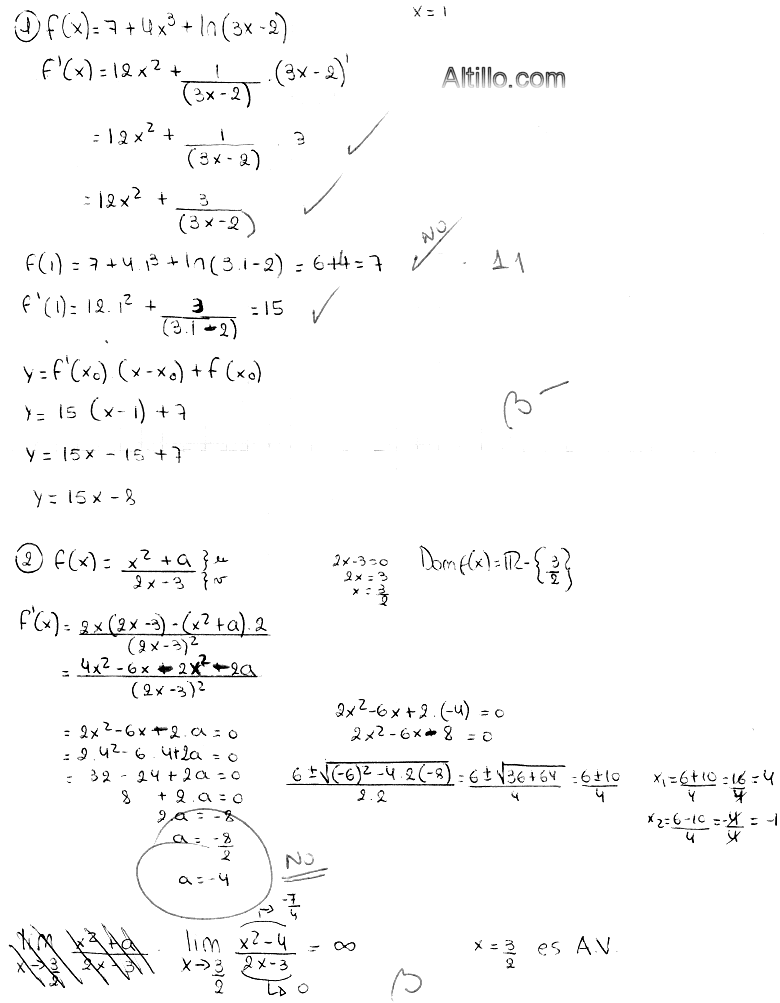 x = 1
① f(x) = 7 + 4x³ + ln(3x-2)
Altillo.com
f'(x) = 12x² + 1/(3x-2) . (3x-2)'
= 12x² + 1/(3x-2) . 3 ✓
= 12x² + 3/(3x-2) ✓
f(1) = 7 + 4.1³ + ln(3.1-2) = 6+4 = 7 NO ✓ . 11
f'(1) = 12.1² + 3/(3.1-2) = 15 ✓
y = f'(x₀) (x-x₀) + f(x₀)
y = 15 (x-1) + 7
B-
y = 15x - 15 + 7
y = 15x - 8
② f(x) = (x² + a)/(2x-3) } u } v
2x-3=0
2x = 3
x = 3/2
Dom f(x) = ℝ - {3/2}
f'(x) = (2x(2x-3) - (x²+a).2)/(2x-3)²
= (4x² - 6x - 2x² - 2a)/(2x-3)²
= 2x² - 6x + 2.a = 0
= 2.4² - 6.4 + 2a = 0
= 32 - 24 + 2a = 0
8 + 2.a = 0
2.a = -8
a = -8/2
a = -4
NO
2x² - 6x + 2.(-4) = 0
2x² - 6x - 8 = 0
(6 ± √((-6)² - 4.2(-8)))/(2.2) = (6 ± √(36+64))/4 = (6±10)/4
x₁ = (6+10)/4 = 16/4 = 4
x₂ = (6-10)/4 = -4/4 = -1
lim x→3/2 (x²+a)/(2x-3)
lim x→3/2 (x²-4)/(2x-3) = ∞
→ -7/4
→ 0
x = 3/2 es A.V.
B